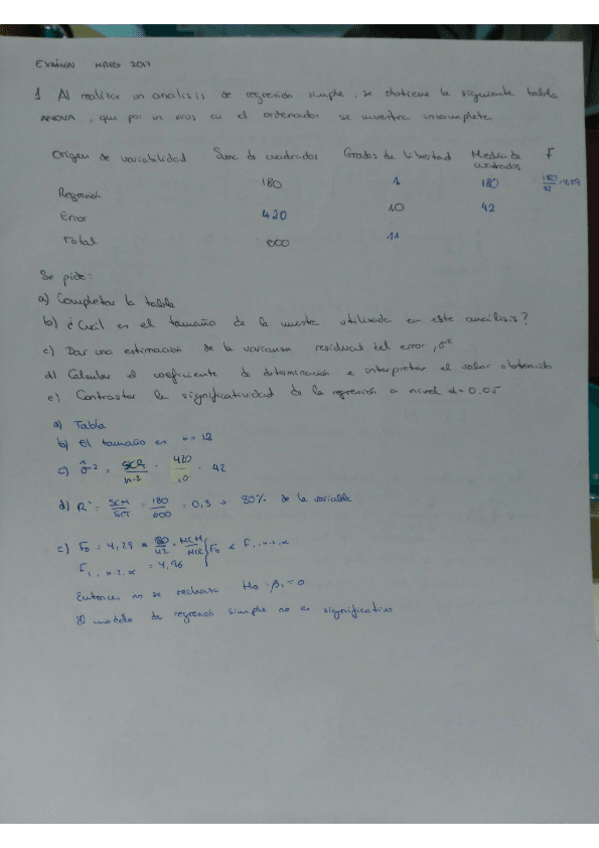 EXAMEN MAYO 2017
1 Al realizar un analisis de regresión simple, se obtiene la siguiente tabla
ANOVA, que por un virus en el ordenador se muestra incompleta
Origen de variabilidad Suma de cuadrados Grados de libertad Media de cuadrados F
Regresión 180 1 180 180/42 = 4.29
Error 420 10 42
Total 600 11
Se pide:
a) Completar la tabla
b) ¿Cuál es el tamaño de la muestra utilizada en este análisis?
c) Dar una estimación de la varianza residual del error, σ²
d) Calcular el coeficiente de determinación e interpretar el valor obtenido
e) Contrastar la significatividad de la regresión a nivel α=0.05
a) Tabla
b) El tamaño es n = 12
c) σ̂² = SCR/n-2 = 420/10 = 42
d) R² = SCM/SCT = 180/600 = 0,3 → % de la variable
e) F₀ = 4,29 = 180/42 = MCM/MCR F₀ < F₁,n-2,α
F₁,n-2,α = 4,96
Entonces no se rechaza H₀: β₁=0
El modelo de regresión simple no es significativo